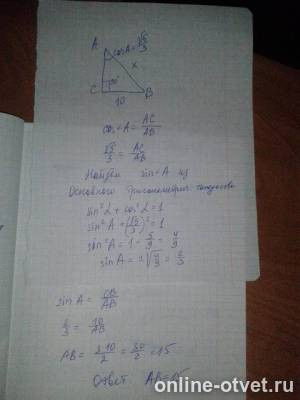 A
cos A = √5/3
x
C 90° B
10
cos∠A = AC/AB
√5/3 = AC/AB
Найдём sin∠A из
Основного тригонометрич. тождества
sin²α + cos²α = 1
sin²A + (√5/3)² = 1
sin²A = 1 - 5/9 = 4/9
sin A = ±√4/9 = 2/3
sin A = CB/AB
2/3 = 10/AB
AB = 3·10/2 = 30/2 = 15
Ответ AB = 15
online-otvet.ru